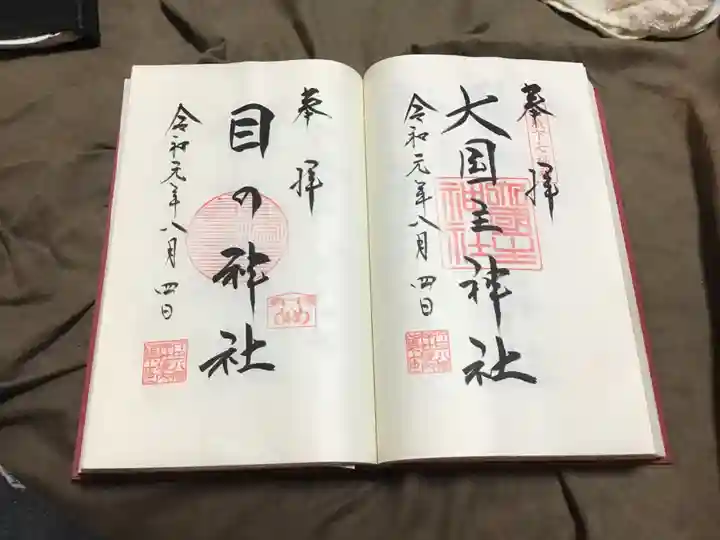 奉拝
大国主神社
令和元年八月四日
奉拝
目の神社
令和元年八月四日